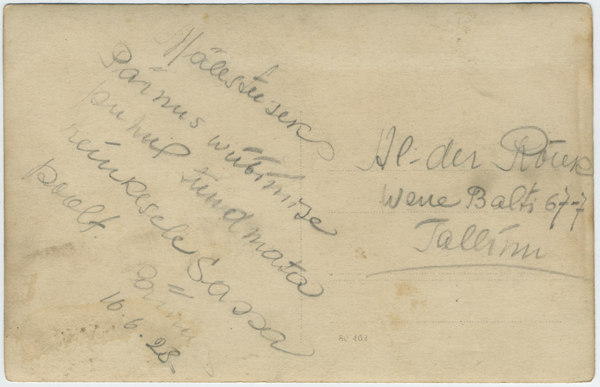 Mälestuseks
Pärnus wiibimise
puhul tundmata
reinlasele Sassa
poolt.
Pärnu
16.6.28.
Al-der
Wene Balti 67-7
Tallinn